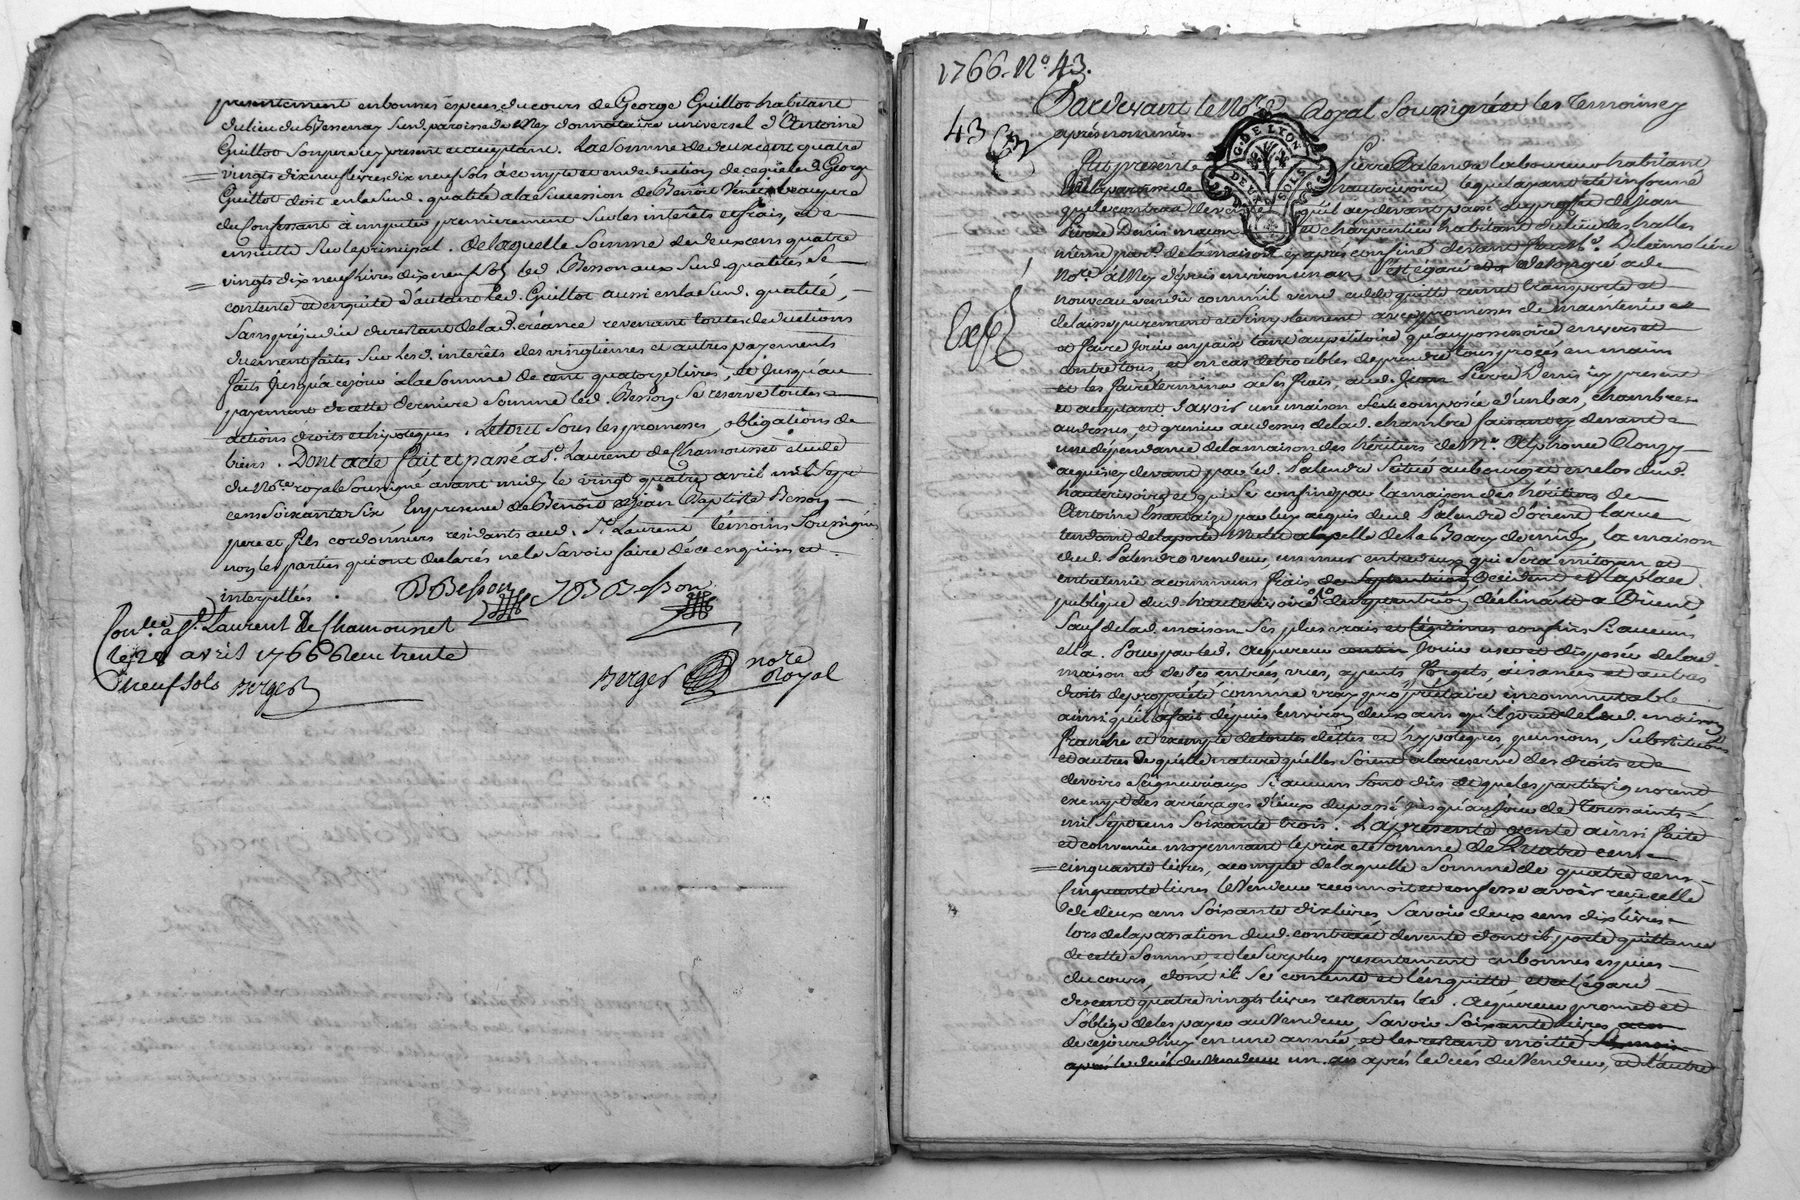 presentement en bonnes especes du cours de George Guillot habitant
du lieu du Bessenay susd. paroisse de Mey donnataire universel d'Antoine
Guillot son pere icy present et acceptant. La somme de deux cent quatre
vingts dix neuf livres dix neuf sols à compte et en deduction de ce que led. George
Guillot doit en lasusd. qualité a la succession de Benoit Venet beaupere
du confessant à imputer premierement sur les intérêts et frais, et
ensuitte sur le principal. de laquelle somme de deux cens quatre
vingts dix neuf livres dix neuf sols led. Besson aux susd. qualités se
contente et en quitte d'autant led. Guillot aussi en lasusd. qualité,
sans prejudice du restant de lad. créance revenant toutes deductions
duement faites sur lesd. intérêts des vingtiemes et autres payements
faits jusqu'a ce jour à la somme de cent quatorze livres, et jusqu'au
payement de cette derniere somme led. Besson se reserve toutes
actions droits et hipoteques. Le tout sous les promesses, obligations de
biens. Dont acte fait et passé a St. Laurent de Chamousset etude
du Nore. royal soussigné avant midy le vingt quatre avril mil sept
cens soixante six En presence de Benoit et Jean Baptiste Besson
pere et fils cordonniers residants aud. St. Laurent témoins soussignés
non les parties qui ont declarés ne le savoir faire de ce enquises et
interpellés.
B Besson JB Besson
Conlée a St. Laurent de Chamousset
le 28 avril 1766 Reçu trente
neuf sols Berger
Berger nore
Royal
1766. No. 43.
43
Pardevant le Nore. Royal soussigné et les temoins cy
après nommés
G. DE LYON
DEUX SOLS
Fut present Pierre Palendre laboureur habitant
la paroisse de hauterivoire, lequel ayant été informé
que le contrat de vente qu'il a cy devant passé au profit de Jean
Pierre Denis maçon et charpentier habitant du lieu des halles
même par. de la maison cy après confinée devant feu Me. Delamoliere
Nore. à Mey depuis environ un an, est egaré et de son gré a de
nouveau vendu comm'il vend cede quitte remet transporte et
delaisse purement et simplement avec promesses de maintenir et
et faire jouir en paix tant au petitoire qu'au possessoire envers et
contre tous, et en cas de troubles de prendre tous procès en mains
et les faire terminer a ses frais, aud. Jean Pierre Denis icy present
et acceptant. Savoir une maison size composée d'un bas, chambre
audessus, et grenier audessus de lad. chambre faisant cy devant
une dépendance de la maison des héritiers de Me. Alphonse Rouzy
acquis cy devant par led. Palendre situé au bourg et enclos dud.
hauterivoire et qui se confine par la maison des héritiers de
Antoine par luy acquis dud. Palendre d'orient la rue
tendant de la porte a la de midy, la maison
dud. Palendre vendeur, un mur entredeux qui sera mitoyen et
entretenu a communs frais de septentrion Occident et la place
publique dud. hauterivoire de septentrion déclinant a Orient,
sauf de lad. maison ses plus vrais et légitimes confins si aucuns
ella. Pour par led. acquereur jouir user et disposer de lad.
maison et de ses entrées, vues, aisances et autres
droits de proprieté comme vray proprietaire incommutable
ainsi qu'il a fait depuis environ deux ans qu'il jouit de lad. maison
franche et exempte de toutes dettes et hypoteques, pensions, substitutions
et autres de quelle nature quelles soient à la reserve des droits et
devoirs seigneuriaux si aucuns sont dûs et que les parties ignorent
exempt des arrérages d'iceux du passé jusqu'au jour de Toussaints
mil sept cens soixante trois. La presente vente ainsi faite
et convenue moyennant le prix et somme de Quatre cens
cinquante livres, a compte de laquelle somme de quatre cens
cinquante livres le Vendeur reconnoit et confesse avoir reçu celle
de deux cens soixante dix livres, savoir deux cens dix livres
lors de la passation dud. contract de vente dont il porte quittance
de cette somme et le surplus presentement en bonnes especes
du cours, dont il se contente et l'en quitte et a l'égard
des cent quatre vingts livres restantes led. acquereur promet et
s'oblige de les payer au Vendeur, savoir soixante livres
de ce jourdhuy en une année et le restant moitié
après le decès du Vendeur un an après le decès du Vendeur, et l'autre